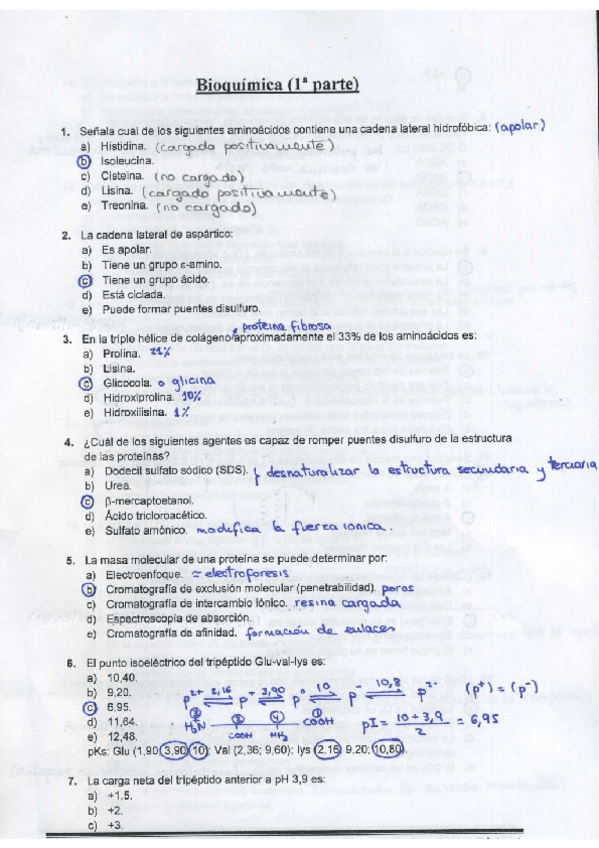 Bioquímica (1ª parte)
1. Señala cual de los siguientes aminoácidos contiene una cadena lateral hidrofóbica: (apolar)
a) Histidina. (cargado positivamente)
b) Isoleucina.
c) Cisteína. (no cargado)
d) Lisina. (cargado positivamente)
e) Treonina. (no cargado)
2. La cadena lateral de aspártico:
a) Es apolar.
b) Tiene un grupo ε-amino.
c) Tiene un grupo ácido.
d) Está ciclada.
e) Puede formar puentes disulfuro.
proteína fibrosa
3. En la triple hélice de colágeno aproximadamente el 33% de los aminoácidos es:
a) Prolina. 21%
b) Lisina.
c) Glicocola. o glicina
d) Hidroxiprolina. 10%
e) Hidroxilisina. 1%
4. ¿Cuál de los siguientes agentes es capaz de romper puentes disulfuro de la estructura
de las proteínas?
a) Dodecil sulfato sódico (SDS). desnaturalizar la estructura secundaria y terciaria
b) Urea.
c) β-mercaptoetanol.
d) Ácido tricloroacético.
e) Sulfato amónico. modifica la fuerza ionica.
5. La masa molecular de una proteína se puede determinar por:
a) Electroenfoque. ≈ electroforesis
b) Cromatografía de exclusión molecular (penetrabilidad). poros
c) Cromatografía de intercambio iónico. resina cargada
d) Espectroscopia de absorción.
e) Cromatografía de afinidad. formación de enlaces
6. El punto isoeléctrico del tripéptido Glu-val-lys es:
a) 10,40.
b) 9,20. p²⁺ 2,16 p⁺ 3,90 p⁰ 10 p⁻ 10,8 p²⁻ (p⁺) = (p⁻)
c) 6,95.
d) 11,64. H₃N COOH NH₃ COOH pI = 10 + 3,9 / 2 = 6,95
e) 12,48.
pKs: Glu (1,90 3,90 10); Val (2,36; 9,60); lys (2,16 9,20; 10,80).
7. La carga neta del tripéptido anterior a pH 3,9 es:
a) +1.5.
b) +2.
c) +3.